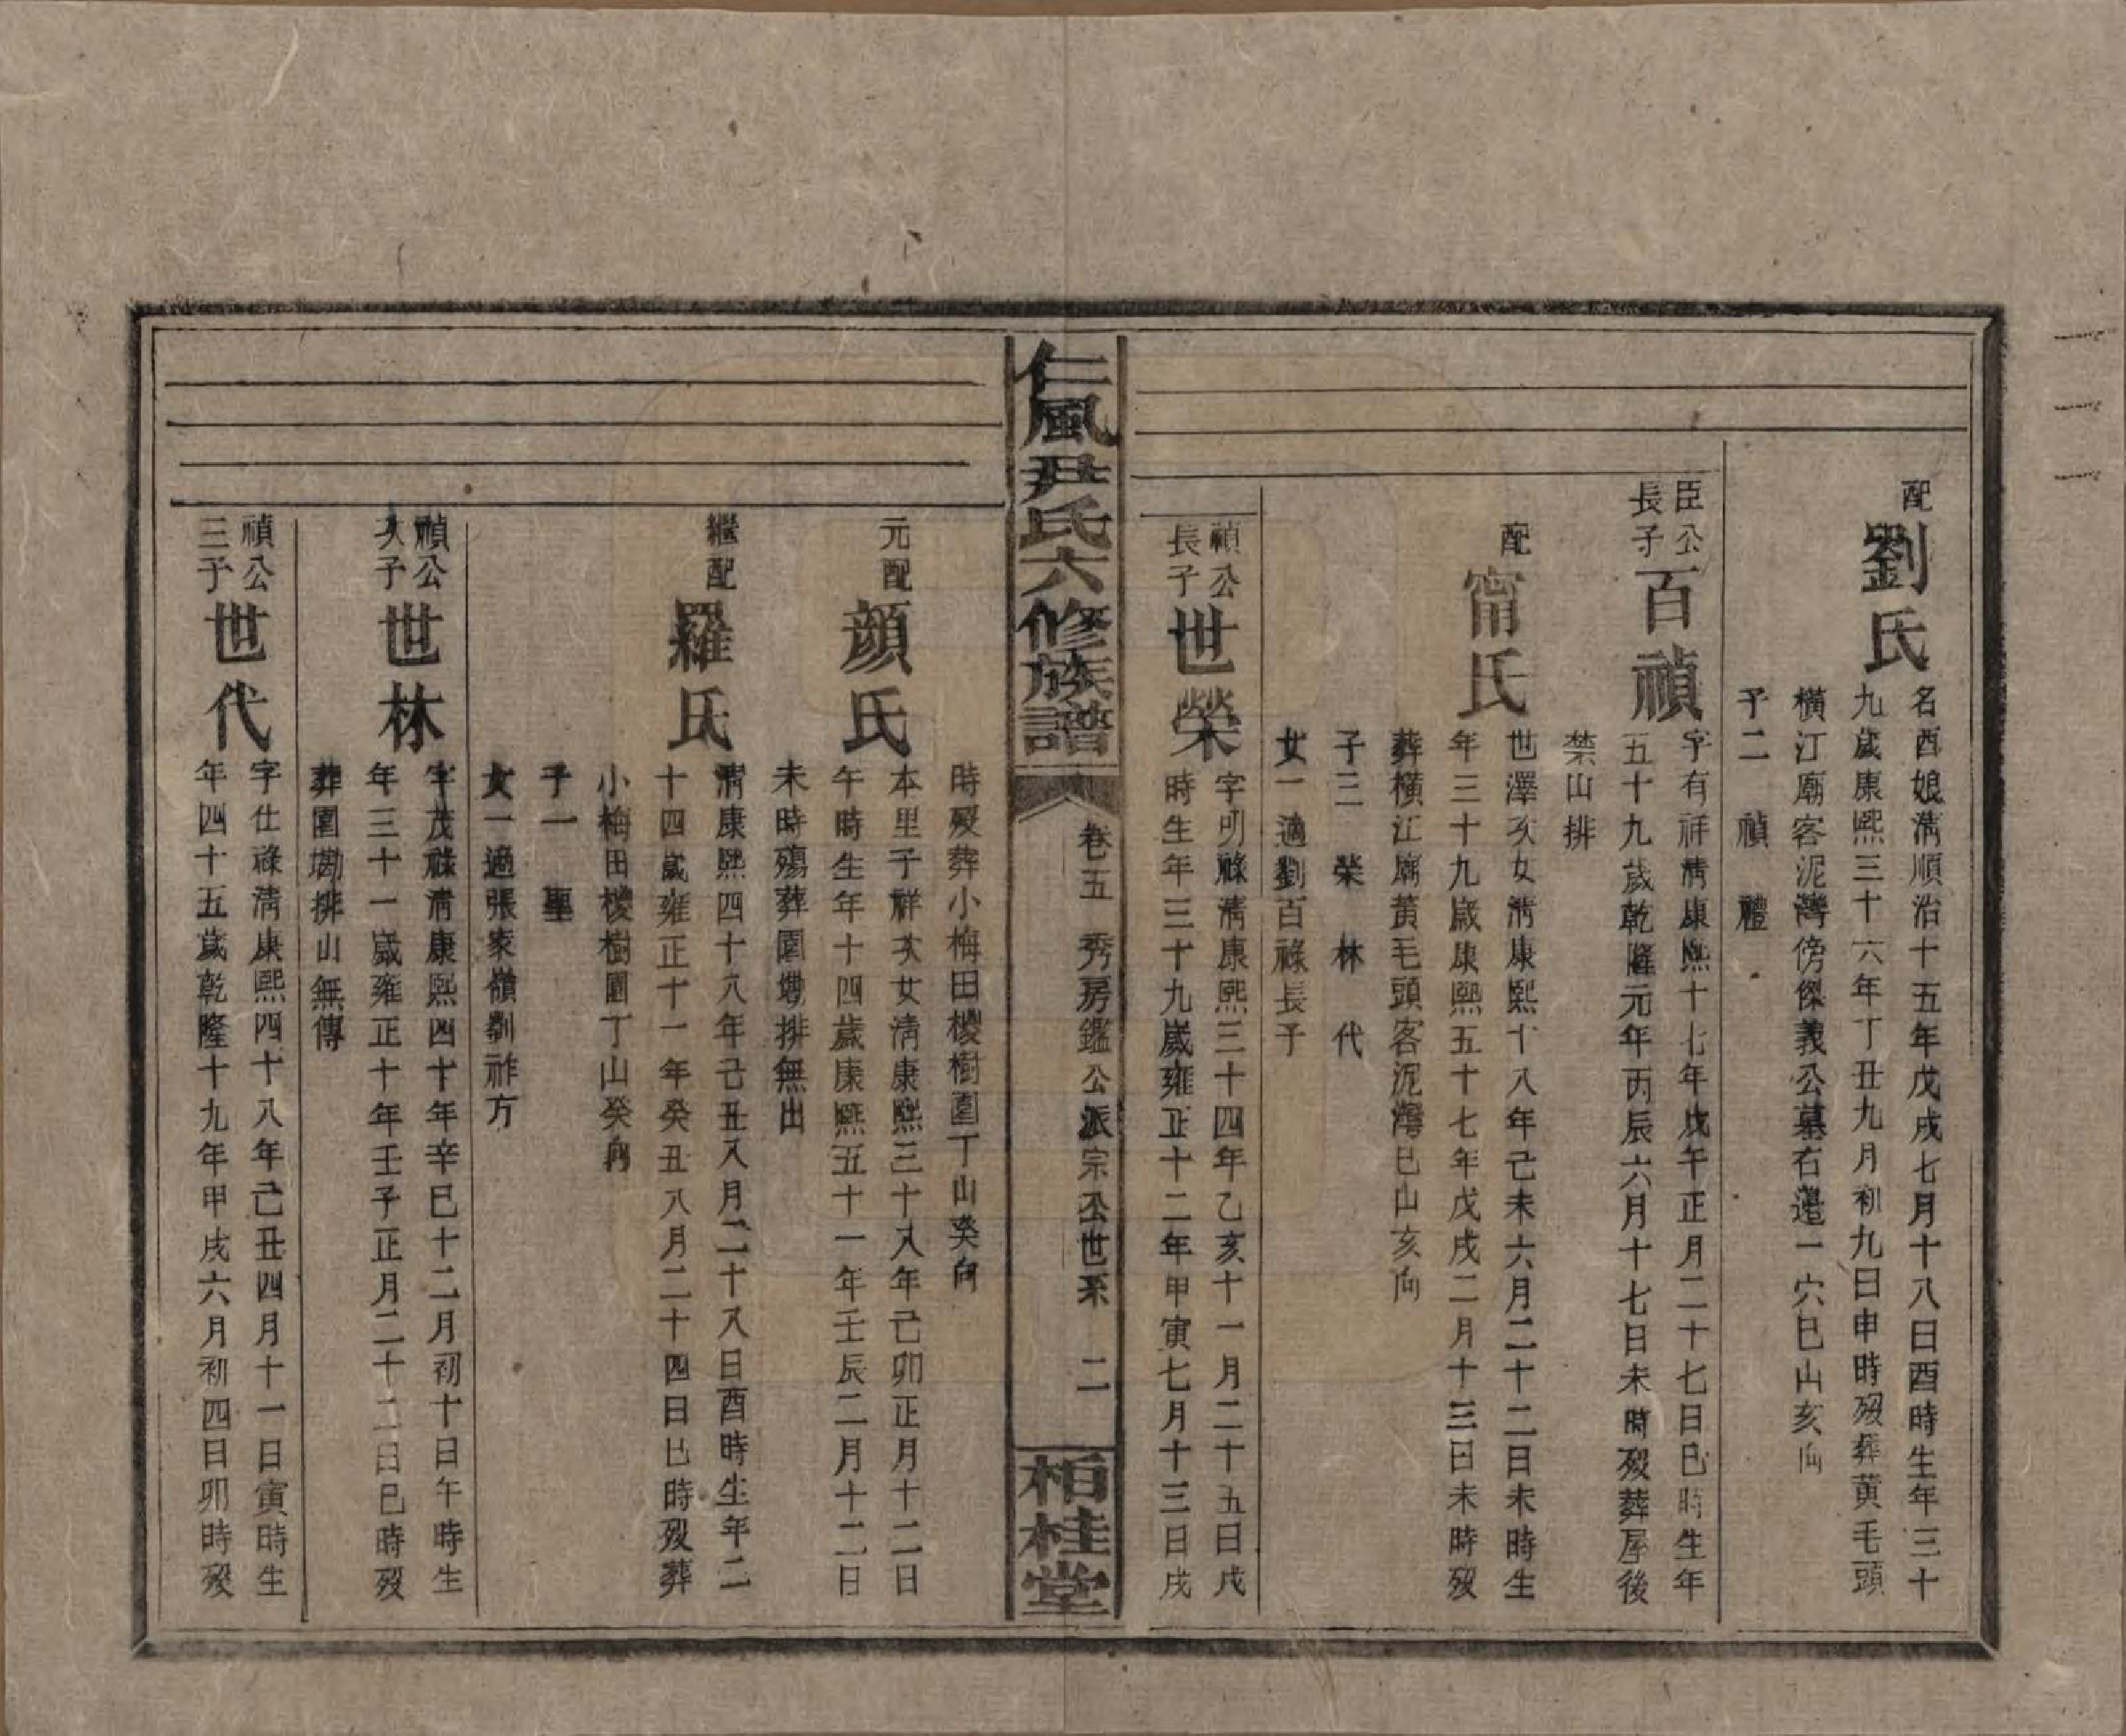 配
劉氏
名酉娘清順治十五年戊戌七月十八日酉時生年三十
九歲康熙三十六年丁丑九月初九日申時歿葬黄毛頭
橫江廟客泥灣傍傑義公墓右邉一穴巳山亥向
子二 禎 禮
臣公
長子
百禎
字有祥清康熙十七年戊午正月二十七日巳時生年
五十九歲乾隆元年丙辰六月十七日未時歿葬屋後
禁山排
配
甯氏
世澤次女清康熙十八年己未六月二十二日未時生
年三十九歲康熙五十七年戊戌二月十三日未時歿
葬橫江廟黃毛頭客泥灣巳山亥向
子三 榮 林 代
女一適劉百祿長子
禎公
長子
世榮
字明祿清康熙三十四年乙亥十一月二十五日戌
時生年三十九歲雍正十二年甲寅七月十三日戌
仁風尹氏六修族譜
卷五 秀房鑑公派宗公世系 二
栢桂堂
時歿葬小梅田椶樹園丁山癸向
元配
顔氏
本里子祥次女清康熙三十八年己卯正月十二日
午時生年十四歲康熙五十一年壬辰二月十二日
未時殤葬園墈排無出
繼配
羅氏
清康熙四十八年己丑八月二十八日酉時生年二
十四歲雍正十一年癸丑八月二十四日巳時歿葬
小梅田椶樹園丁山癸向
子一 聖
女一適張家嶺劉祚方
禎公
次子
世林
字茂祿清康熙四十年辛巳十二月初十日午時生
年三十一歲雍正十年壬子正月二十二日巳時歿
葬園墈排山無傳
禎公
三子
世代
字仕祿清康熙四十八年己丑四月十一日寅時生
年四十五歲乾隆十九年甲戌六月初四日卯時歿